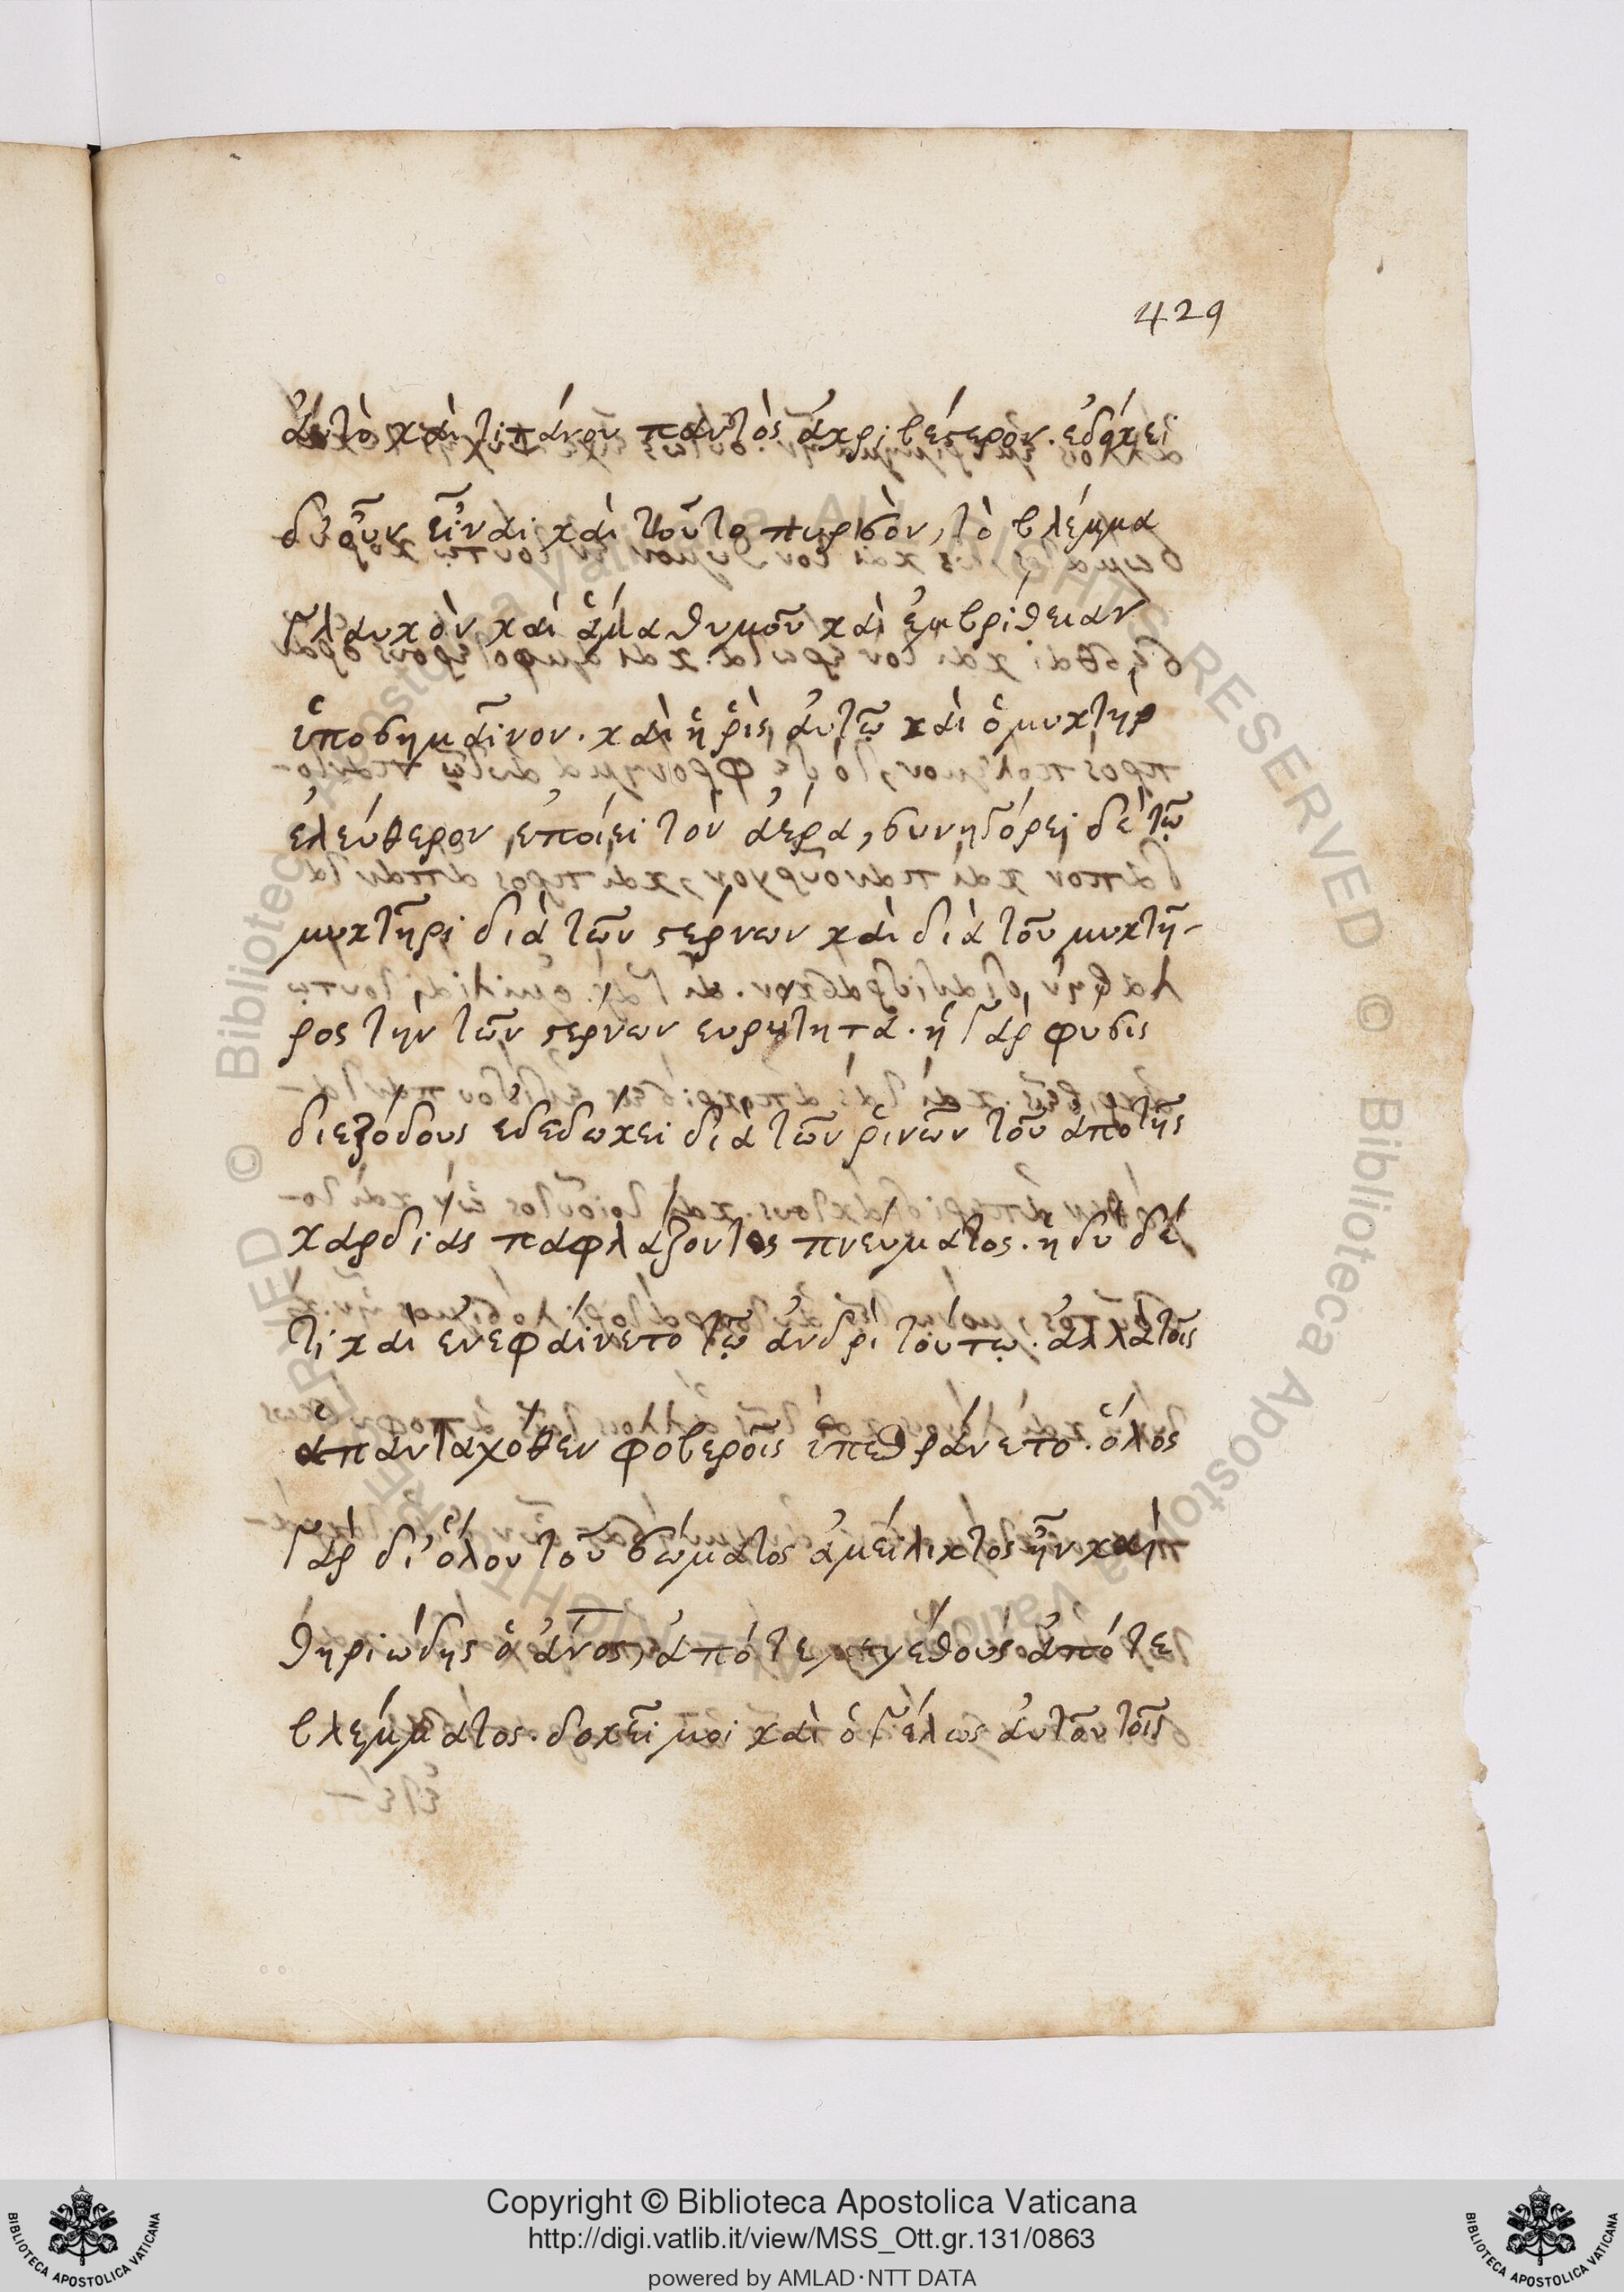 429
ἀυτὸ καὶ τιτάνου παντὸς ἀκριβέστερον. ἐδόκει
δ' οὖν εἶναι καὶ τοῦτο πυρσὸν, τὸ βλέμμα
γλαυκὸν καὶ ἅμα θυμοῦ καὶ ἐμβρίθειαν
ὑποσημαῖνον. καὶ ἡ ῥὶς ἀυτῶ καὶ ὁ μυκτὴρ
ἐλεύθερον ἐπόιει τὸν ἀέρα, συνηγόρει δὲ τῶ
μυκτῆρι διὰ τῶν στέρνων καὶ διὰ τοῦ μυκτῆ-
ρος τὴν τῶν στέρνων ευρύτητα. ἡ γὰρ φύσις
διεξόδους ἐδεδώκει διὰ τῶν ῥινῶν τοῦ ἀπὸ τῆς
καρδίας παφλάζοντος πνεύματος. ἡδὺ δέ
τι καὶ ἐνεφαίνετο τῶ ἀνδρὶ τούτω. ἀλλὰ τοῖς
ἁπανταχόθεν φοβεροῖς ὑπεθράνετο. ὅλος
γὰρ δι' ὅλου τοῦ σώματος ἀμείλικτος ἦν καὶ
θηριώδης ὁ ἄνος, ἀπό τε μεγέθους ἀπό τε
βλέμματος. δοκεῖ μοι καὶ ὁ γέλως ἀυτοῦ τοῖς
Copyright © Biblioteca Apostolica Vaticana
http://digi.vatlib.it/view/MSS_Ott.gr.131/0863
powered by AMLAD·NTT DATA
BIBLIOTECA APOSTOLICA VATICANA
BIBLIOTECA APOSTOLICA VATICANA